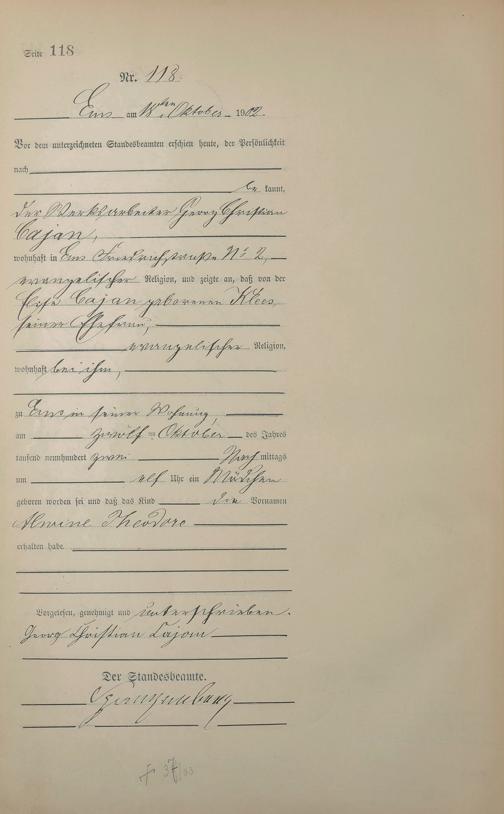 Seite 118
Nr. 118.
Ems am 18ten Oktober 1902.
Vor dem unterzeichneten Standesbeamten erschien heute, der Persönlichkeit
nach
be kannt,
der Werksarbeiter Georg Christian
Cajan,
wohnhaft in Ems Friedrichstraße No 2,
evangelischer Religion, und zeigte an, daß von der
Cajan geborenen Kloos
seiner Ehefrau,
evangelischer Religion,
wohnhaft bei ihm,
zu Ems in seiner Wohnung,
am zwölf ten Oktober des Jahres
tausend neunhundert zwei Nach mittags
um elf Uhr ein Mädchen
geboren worden sei und daß das Kind die Vornamen
Alwine Theodore
erhalten habe.
Vorgelesen, genehmigt und unterschrieben.
Georg Christian Cajan
Der Standesbeamte.